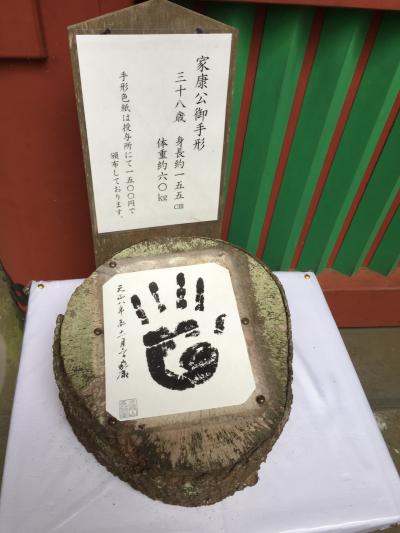 家康公御手形
三十八歳 身長約一五五cm
体重約六〇kg
手形色紙は授与所にて一五〇〇円で
頒布しております。